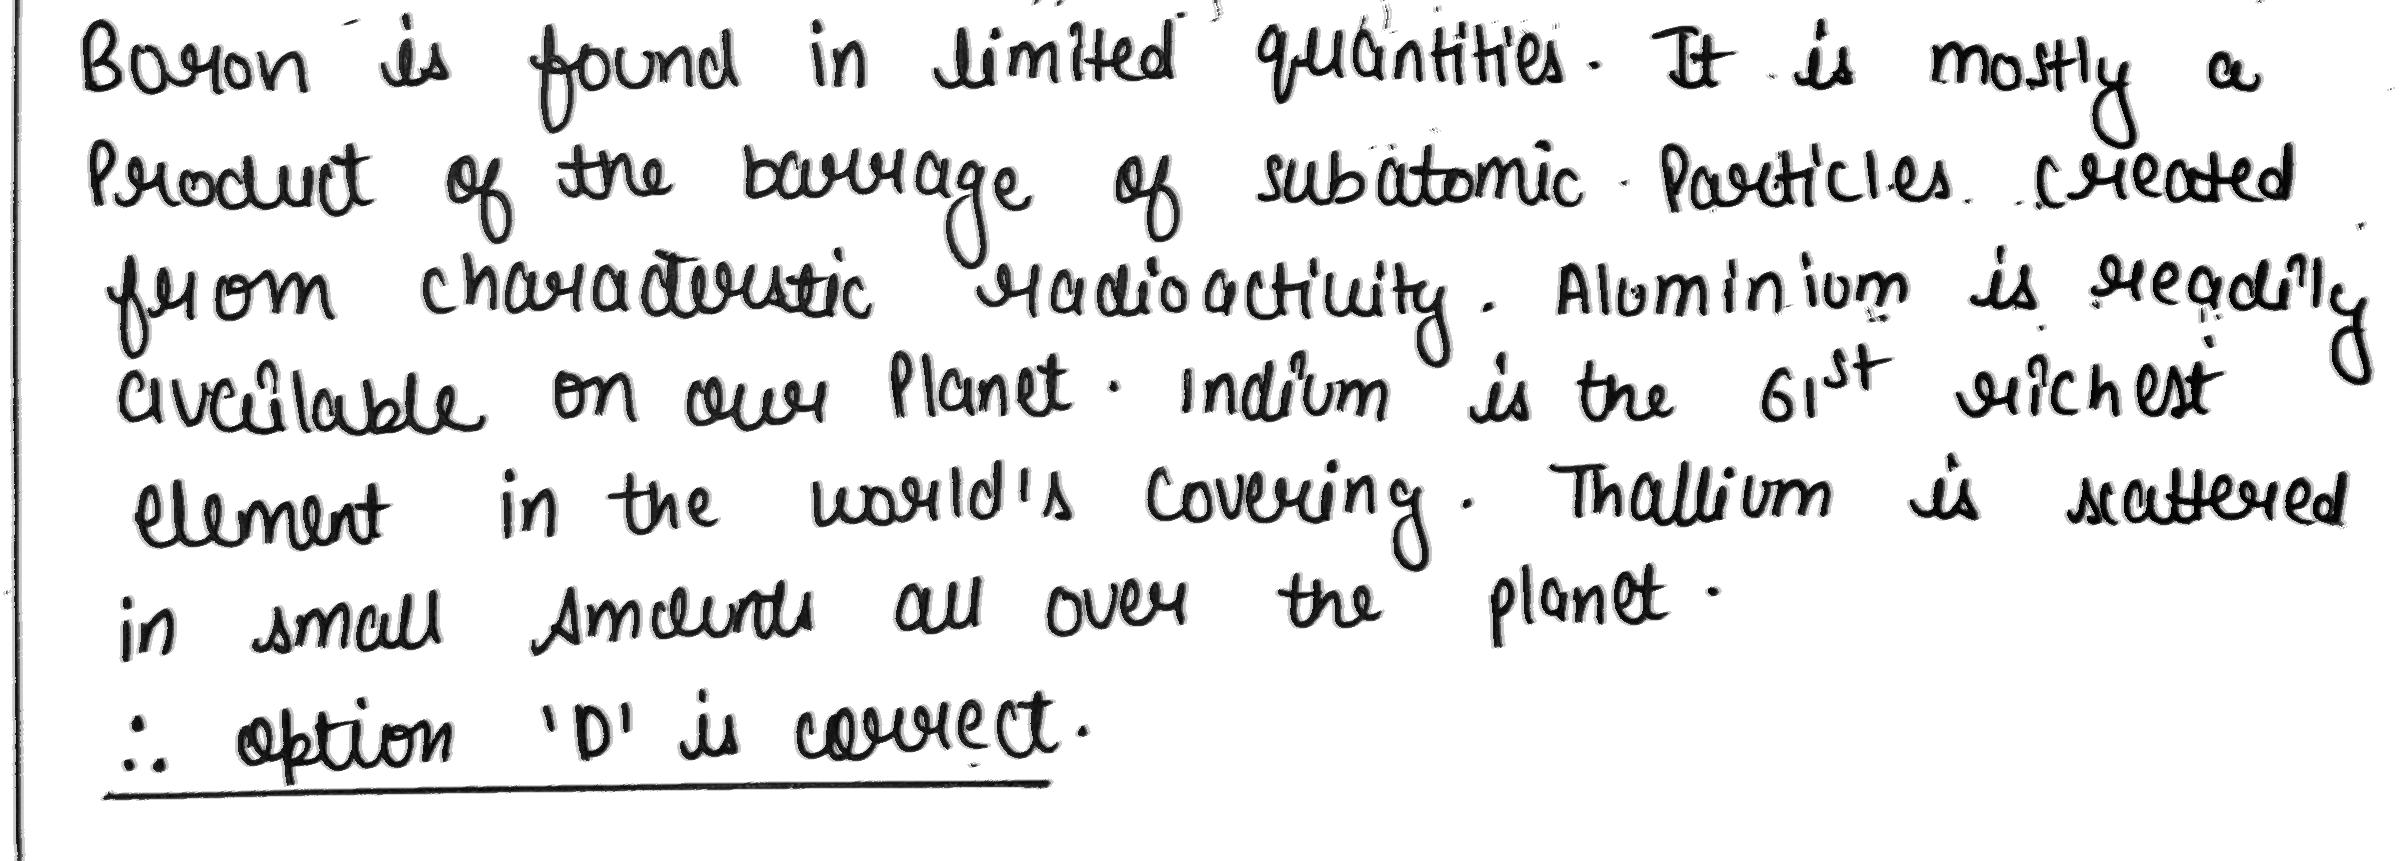 Boron is found in limited quantities. It is mostly a
Product of the barrage of subatomic Particles created
from characteristic radioactivity. Aluminium is readily
available on our Planet. Indium is the 61st richest
element in the world's covering. Thallium is scattered
in small Amounts all over the planet.
∴ option 'D' is correct.